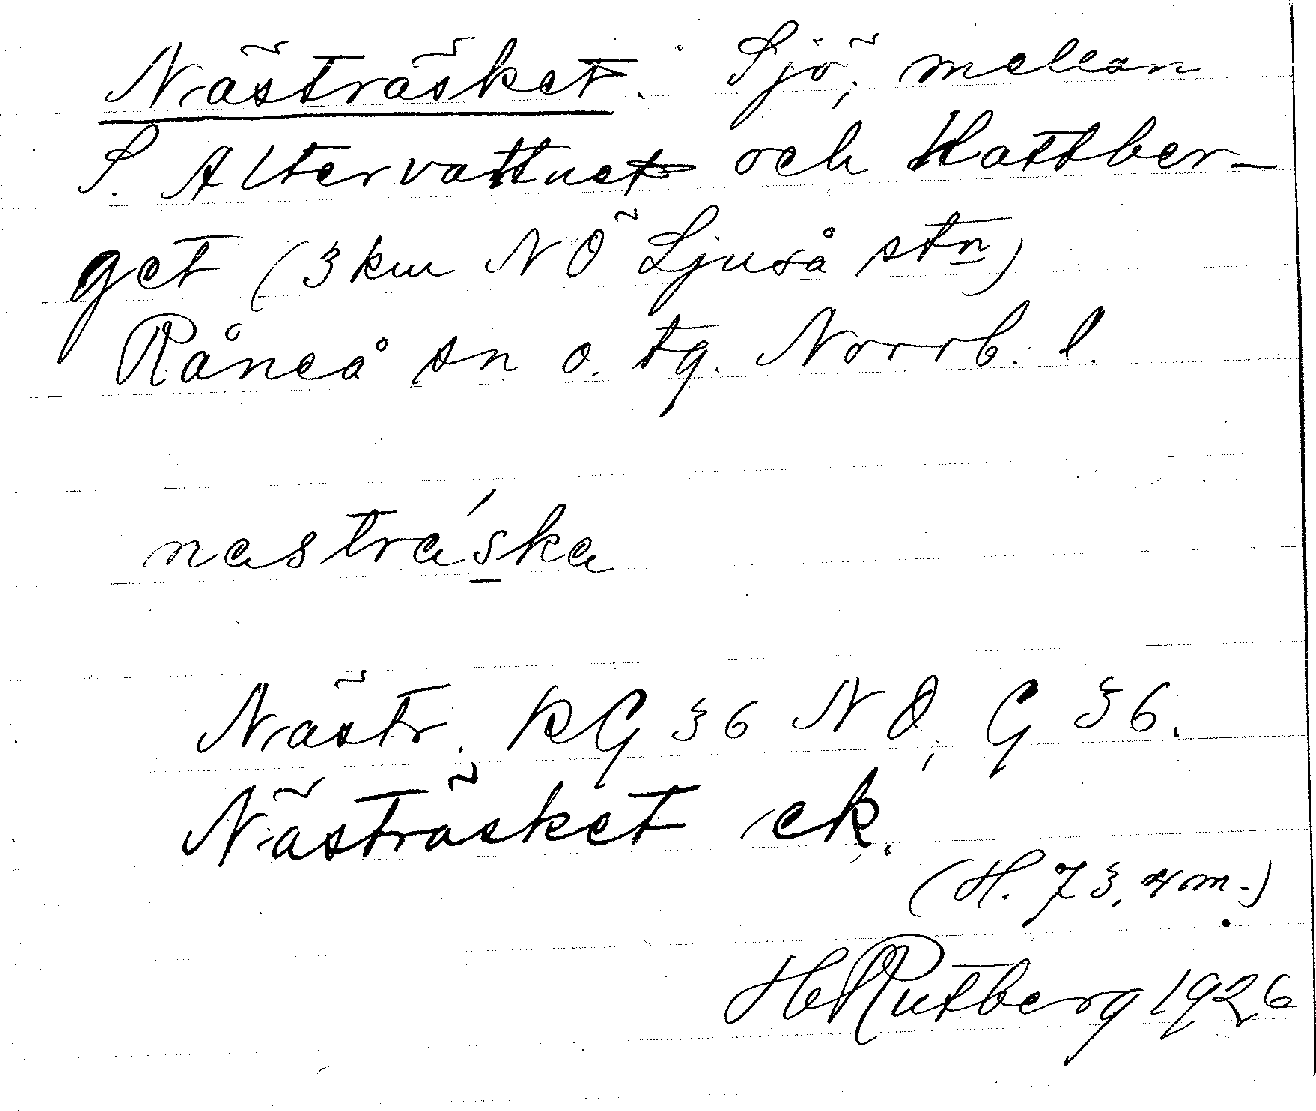 Nästräsket. Sjö, mellan
S. Altervattnet och Hattber-
get (3 km NÖ Ljuså stn)
Råneå sn o. tg. Norrb. l.
nastráska
Nästr. RG 36 NO, G 36.
Nästräsket ek.
(H. 73,4 m.)
H Rutberg 1926